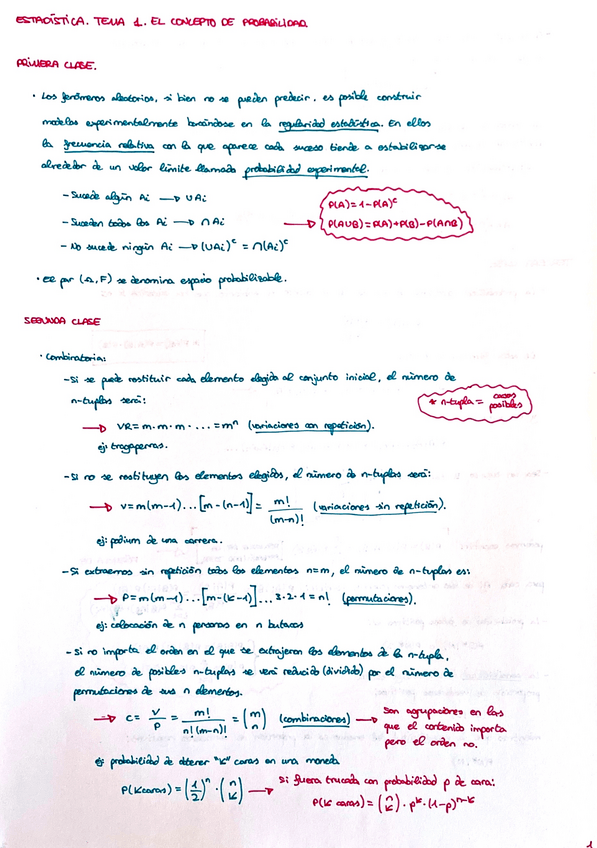 ESTADÍSTICA. TEMA 1. EL CONCEPTO DE PROBABILIDAD.
PRIMERA CLASE.
· Los fenómenos aleatorios, si bien no se pueden predecir, es posible construir
modelos experimentalmente basándose en la regularidad estadística. En ellos
la frecuencia relativa con la que aparece cada suceso tiende a estabilizarse
alrededor de un valor límite llamado probabilidad experimental.
- Sucede algún Ai → ∪Ai
- Suceden todos los Ai → ∩Ai
- No sucede ningún Ai → (∪Ai)ᶜ = ∩(Ai)ᶜ
→ P(A)=1-P(A)ᶜ
P(A∪B)=P(A)+P(B)-P(A∩B)
· El par (Ω, F) se denomina espacio probabilizable.
SEGUNDA CLASE
· Combinatoria:
- Si se puede restituir cada elemento elegido al conjunto inicial, el número de
n-tuplas será:
* n-tupla = casos posibles
→ VR = m·m·m·... = mⁿ (variaciones con repetición).
ej: tragaperras.
- Si no se restituyen los elementos elegidos, el número de n-tuplas será:
→ V = m(m-1)...[m-(n-1)] = m!/(m-n)! (variaciones sin repetición).
ej: podium de una carrera.
- Si extraemos sin repetición todos los elementos n=m, el número de n-tuplas es:
→ P = m(m-1)...[m-(k-1)]...3·2·1 = n! (permutaciones).
ej: colocación de n personas en n butacas
- Si no importa el orden en el que se extrajeron los elementos de la n-tupla,
el número de posibles n-tuplas se verá reducido (dividido) por el número de
permutaciones de sus n elementos.
→ C = V/P = m!/n!(m-n)! = (m n) (combinaciones) → Son agrupaciones en las
que el contenido importa
pero el orden no.
ej: probabilidad de obtener "k" caras en una moneda
P(k caras) = (1/2)ⁿ · (n k) → Si fuera trucada con probabilidad p de cara:
P(k caras) = (n k) · pᵏ · (1-p)ⁿ⁻ᵏ
1